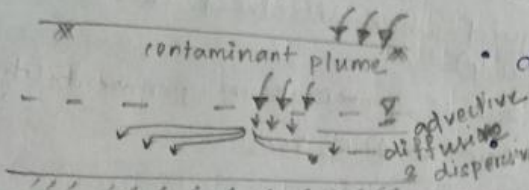 contaminant plume
advective
diffusive
& dispersive